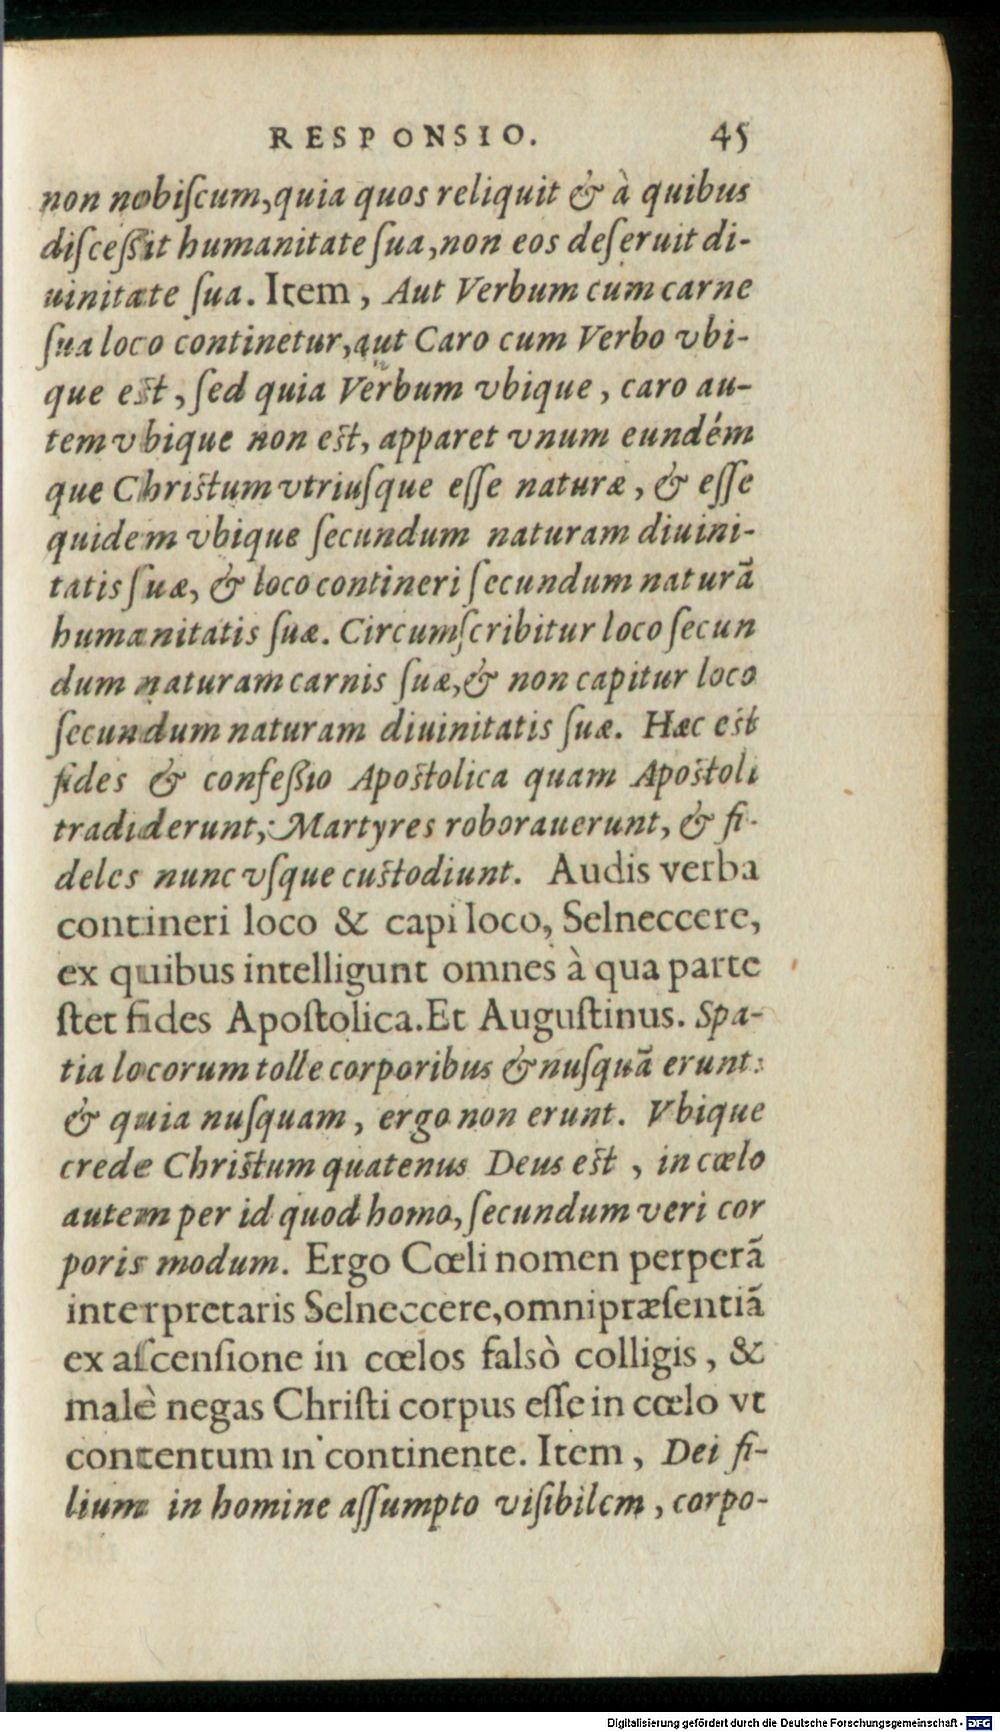 RESPONSIO. 45
non nobiſcum, quia quos reliquit & à quibus
diſceßit humanitate ſua, non eos deſeruit di-
uinitate ſua. Item, Aut Verbum cum carne
ſua loco continetur, aut Caro cum Verbo vbi-
que est, ſed quia Verbum vbique, caro au-
tem vbique non est, apparet vnum eundém
que Christum vtriuſque eſſe naturæ, & eſſe
quidem vbique ſecundum naturam diuini-
tatis ſuæ, & loco contineri ſecundum naturā
humanitatis ſuæ. Circumſcribitur loco ſecun
dum naturam carnis ſuæ, & non capitur loco
ſecundum naturam diuinitatis ſuæ. Hæc est
fides & confeßio Apostolica quam Apostoli
tradiderunt, Martyres roborauerunt, & fi-
deles nunc vſque custodiunt. Audis verba
contineri loco & capi loco, Selneccere,
ex quibus intelligunt omnes à qua parte
ſtet fides Apoſtolica. Et Auguſtinus. Spa-
tia locorum tolle corporibus & nuſquā erunt:
& quia nuſquam, ergo non erunt. Vbique
crede Christum quatenus Deus est, in cœlo
autem per id quod homo, ſecundum veri cor
poris modum. Ergo Cœli nomen perperā
interpretaris Selneccere, omnipræſentiā
ex aſcenſione in cœlos falsò colligis, &
malè negas Chriſti corpus eſſe in cœlo vt
contentum in continente. Item, Dei fi-
lium in homine aſſumpto viſibilem, corpo-
Digitalisierung gefördert durch die Deutsche Forschungsgemeinschaft - DFG